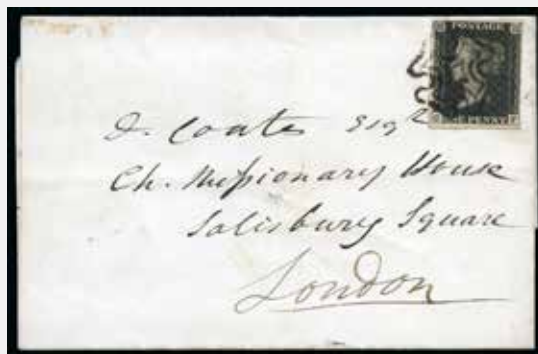 POSTAGE
E PENNY
D. Coates Esqr
Ch. Missionary House
Salisbury Square
London